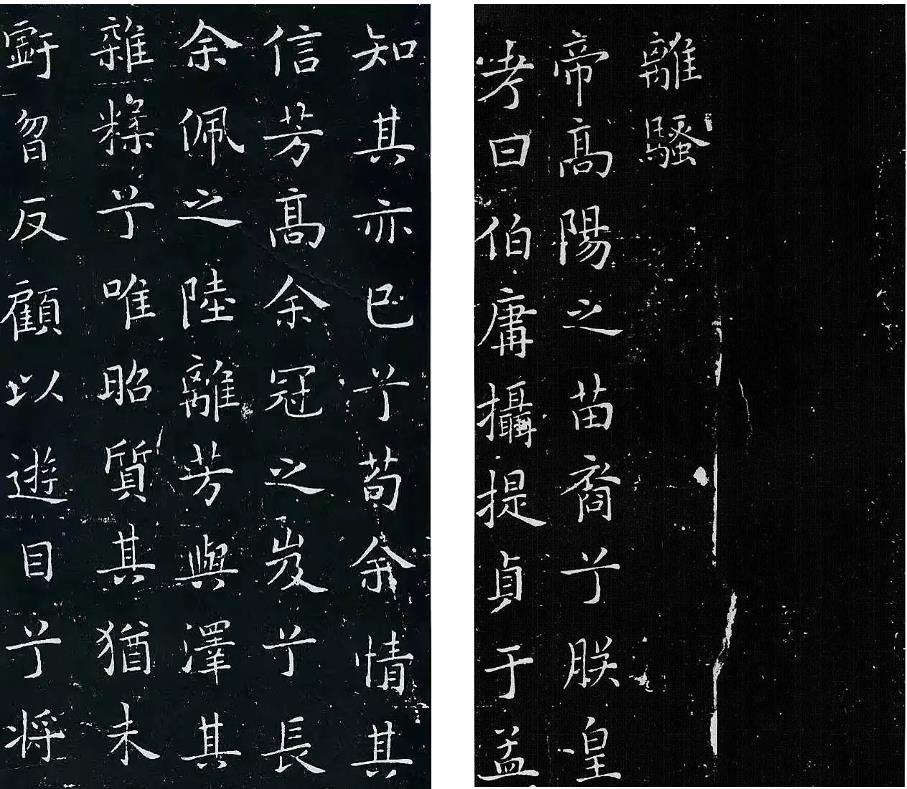 離騷
帝髙陽之苗裔兮朕皇
考曰伯庸攝提貞于孟
知其亦已兮苟余情其
信芳髙余冠之岌兮長
余佩之陸離芳與澤其
雜糅兮唯昭質其猶未
虧忽反顧以遊目兮將